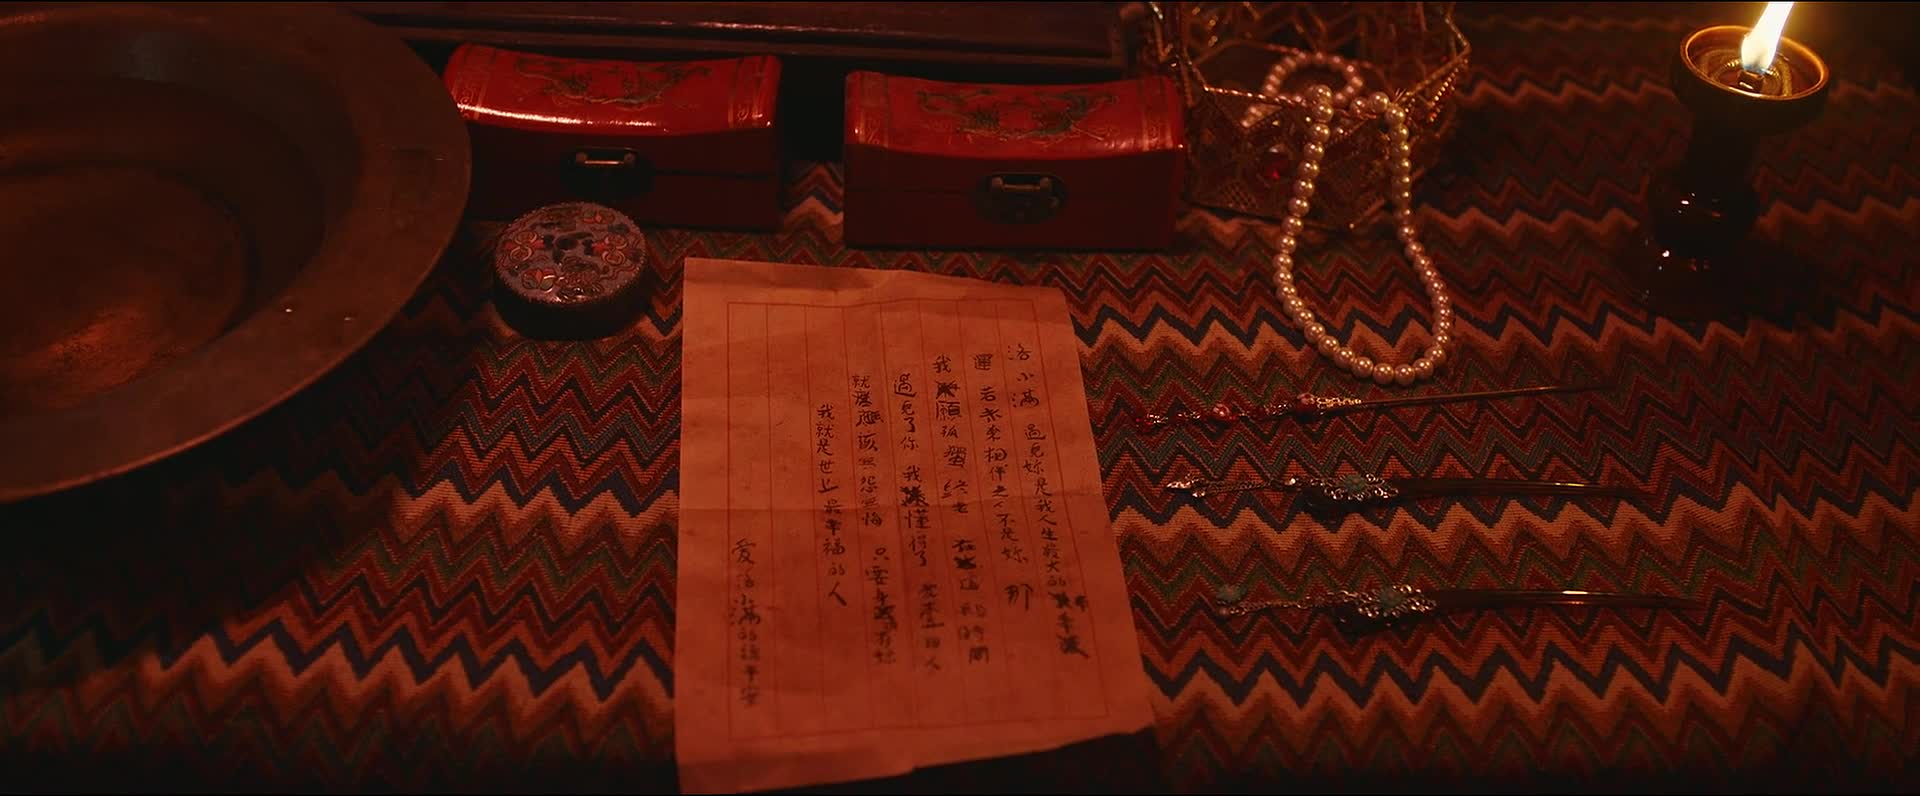 洛小滿 遇見妳是我人生最大的幸
運 若未來相伴之人不是妳 那
我願孤獨終老 在這段時間
遇見了你 我懂得了 人
就應該無怨無悔 只要有妳
我就是世上最幸福的人
愛洛小滿的平安